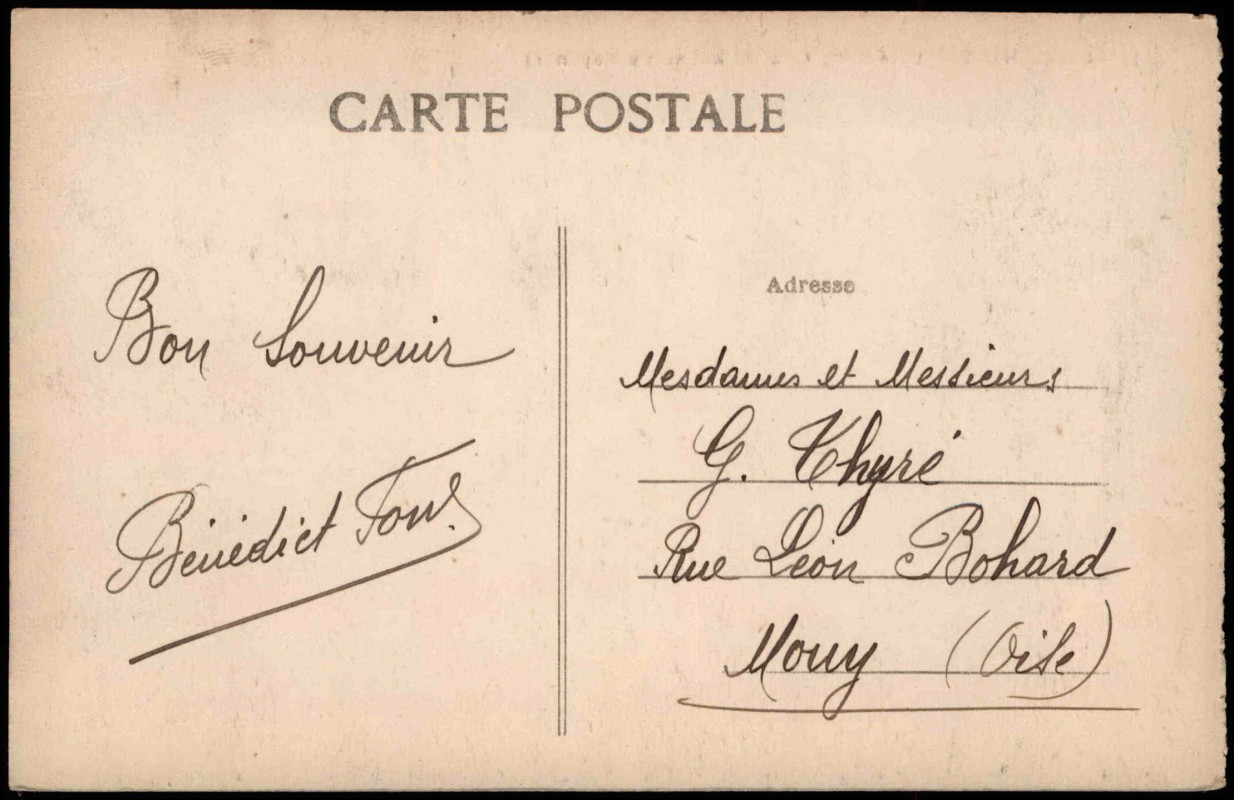 CARTE POSTALE
Bon Souvenir
Bénédict
Adresse
Mesdames et Messieurs
G. Thyré
Rue Léon Bohard
Mouy (Oise)